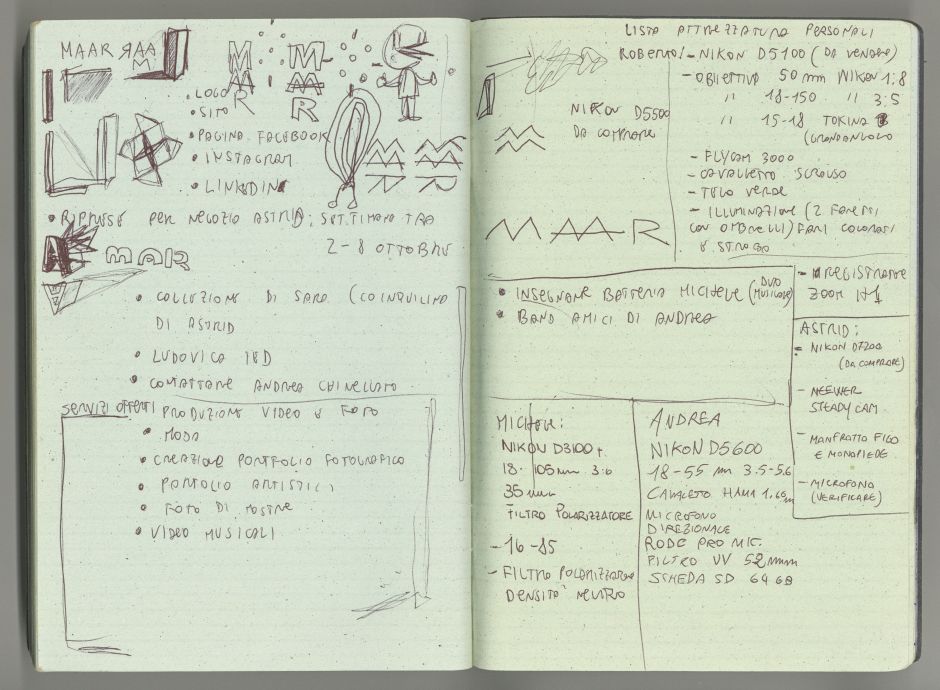 MAAR
LOGO
SITO
PAGINA FACEBOOK
INSTAGRAM
LINKEDIN
RIPRESE PER NEGOZIO ASTRID; SETTIMANA TRA
2-8 OTTOBRE
MAAR
COLLEZIONE DI SARA (COINQUILINA
DI ASTRID
LUDOVICA IED
CONTATTARE ANDREA CHINELLATO
SERVIZI OFFERTI
PRODUZIONE VIDEO E FOTO
MODA
CREAZIONE PORTFOLIO FOTOGRAFICO
ARTISTICI
FOTO DI MOSTRE
VIDEO MUSICALI
LISTA ATTREZZATURA PERSONALI
ROBERTO: - NIKON D5100 (DA VENDERE)
- OBIETTIVO 50 mm NIKON 1:8
" 18-150 " 3:5
" 15-18 TOKINA
(GRANDANGOLO
- FLYCAM 3000
- CAVALLETTO
- TELO VERDE
- ILLUMINAZIONE (2 FARETTI
CON OMBRELLI) FARI COLORATI
E STROBO
- REGISTRATORE
ZOOM H1
NIKON D5500
DA COMPRARE
MAAR
INSEGNANE BATTERIA MICHELE (DUO
MUSICALE)
BAND AMICI DI ANDREA
ASTRID:
- NIKON D7200
(DA COMPRARE)
- NEEWER
STEADYCAM
- MANFROTTO FIGO
E MONOPIEDE
- MICROFONO
(VERIFICARE)
MICHELE:
NIKON D3100
18-105mm 3.6
35 mm
FILTRO POLARIZZATORE
- 16-85
- FILTRO POLARIZZATORE
DENSITÀ NEUTRO
ANDREA
NIKON D5600
18-55 mm 3.5-5.6
HAMA
MICROFONO
DIREZIONALE
RODE PRO MIC.
FILTRO UV 52mm
SCHEDA SD 64 GB